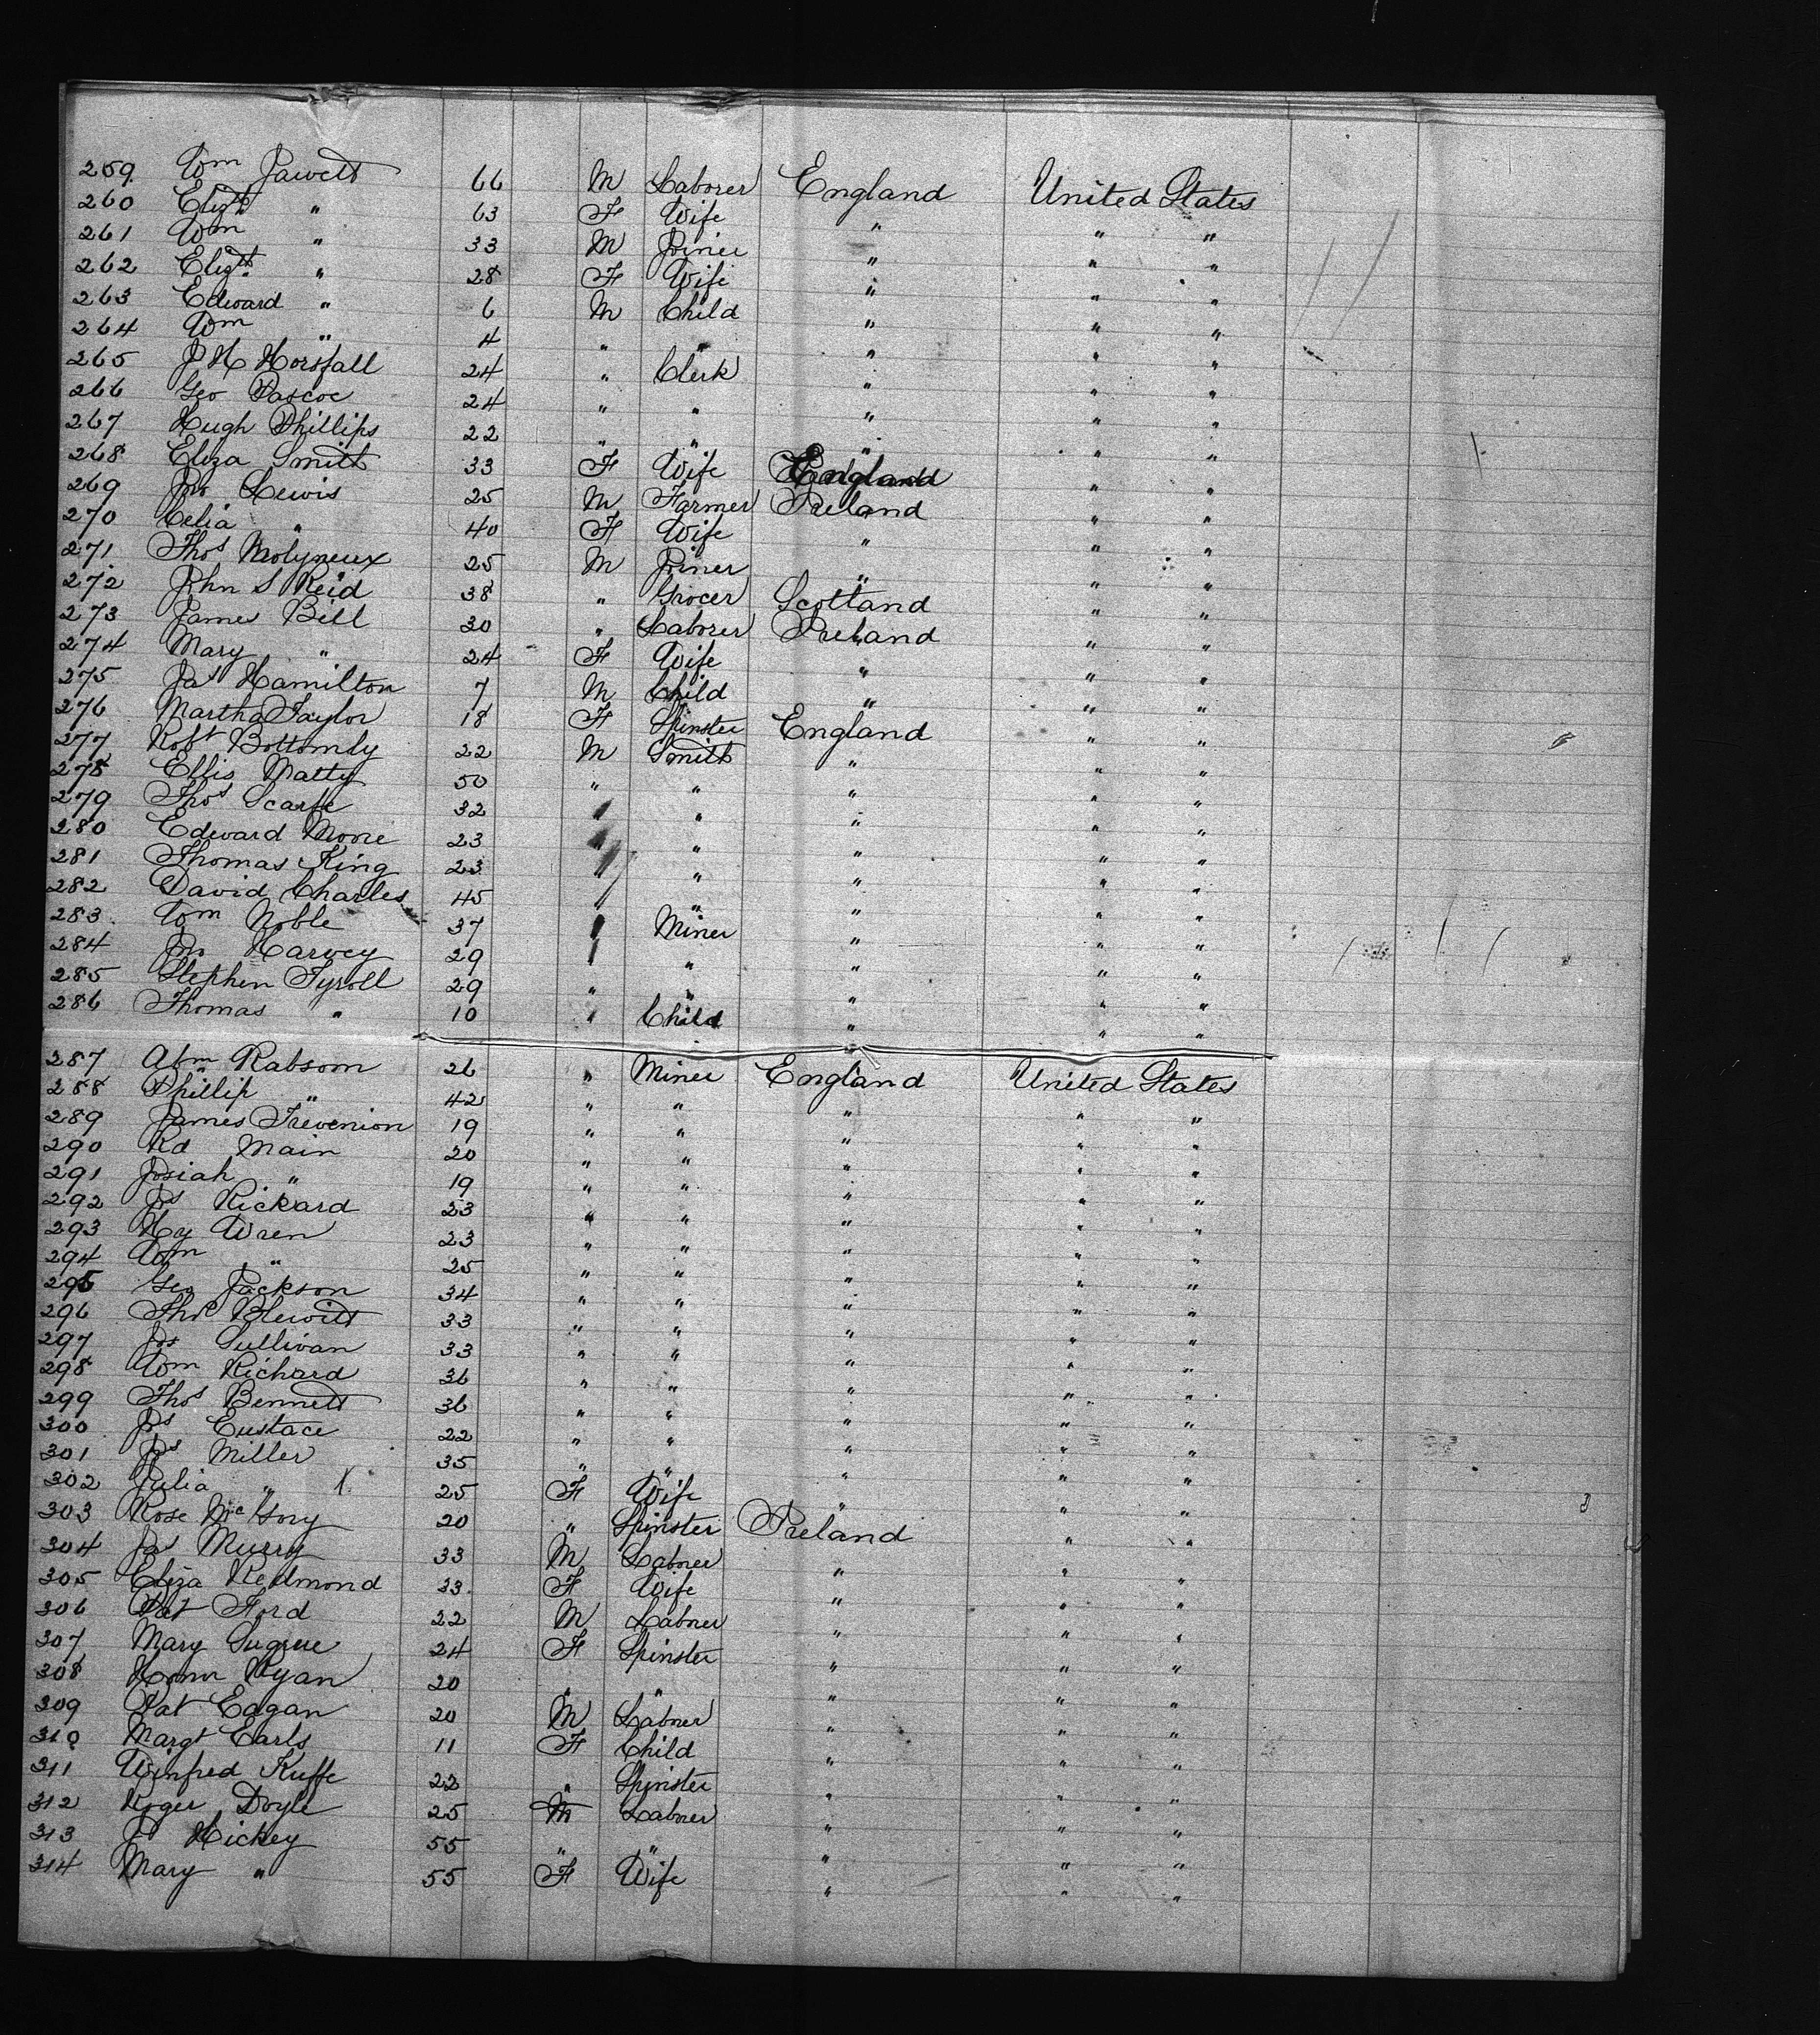 259 Wm Jawett 66 M Laborer England United States
260 Elizth " 63 F Wife " " "
261 Wm " 33 M Joiner " " "
262 Elizth " 28 F Wife " " "
263 Edward " 6 M Child " " "
264 Wm " 4 " " " " "
265 J H Horsfall 24 " Clerk " " "
266 Geo Pascoe 24 " " " " "
267 Hugh Phillips 22 " " " " "
268 Eliza Smith 33 F Wife England " "
269 Jno Lewis 25 M Farmer Ireland " "
270 Celia " 40 F Wife " " "
271 Thos Molyneux 25 M Joiner " " "
272 John S Reid 38 " Grocer Scotland " "
273 James Bill 30 " Laborer Ireland " "
274 Mary " 24 F Wife " " "
275 Jas Hamilton 7 M Child " " "
276 Martha Taylor 18 F Spinster England " "
277 Robt Bottomly 22 M Smith " " "
278 Ellis Matty 50 " " " " "
279 Thos Scarfe 32 " " " " "
280 Edward Moore 23 " " " " "
281 Thomas King 23 " " " " "
282 David Charles 45 " " " " "
283 Wm Noble 37 " Miner " " "
284 Jno Harvey 29 " " " " "
285 Stephen Tyroll 29 " " " " "
286 Thomas " 10 " Child " " "
287 Abm Rabsom 26 " Miner England United States
288 Phillip " 42 " " " " "
289 James Trevenion 19 " " " " "
290 Rd Main 20 " " " " "
291 Josiah " 19 " " " " "
292 Js Rickard 23 " " " " "
293 Hy Wren 23 " " " " "
294 Wm " 25 " " " " "
295 Geo Jackson 34 " " " " "
296 Thos Blewitt 33 " " " " "
297 Jos Sullivan 33 " " " " "
298 Wm Richard 36 " " " " "
299 Thos Bennett 36 " " " " "
300 Js Eustace 22 " " " " "
301 Js Miller 35 " " " " "
302 Julia " X 25 F Wife " " "
303 Rose 20 " Spinster Ireland " "
304 Js Murry 33 M Laborer " " "
305 Eliza Redmond 33 F Wife " " "
306 Pat Ford 22 M Laborer " " "
307 Mary Sugrue 24 F Spinster " " "
308 Honor Ryan 20 " " " " "
309 Pat Eagan 20 M Laborer " " "
310 Margt Earls 11 F Child " " "
311 Winfred 22 " Spinster " " "
312 Roger Doyle 25 M Laborer " " "
313 J Hickey 55 " " " " "
314 Mary " 55 F Wife " " "